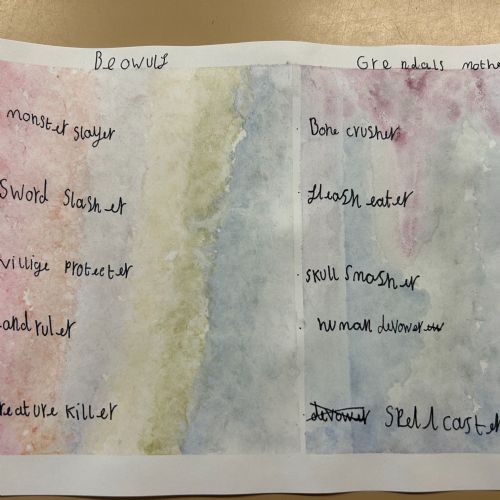 Beowulf
monster slayer
Sword Slasher
villige protecter
and ruler
reature killer
Grendals mothe
Bone crusher
fleash eater
skull smasher
human devower
devower Spell caster